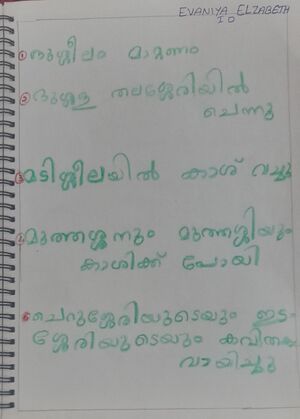 EVANIYA ELZABETH
10
① ദുശ്ശീലം മാറണം
② ദുശ്ശള തലശ്ശേരിയിൽ
ചെന്നു
③ മടിശ്ശീലയിൽ കാശ് വച്ചു
④ മുത്തശ്ശനും മുത്തശ്ശിയും
കാശിക്ക് പോയി
⑤ ചെറുശ്ശേരിയുടെയും ഇട-
ശ്ശേരിയുടെയും കവിതകൾ
വായിച്ചു